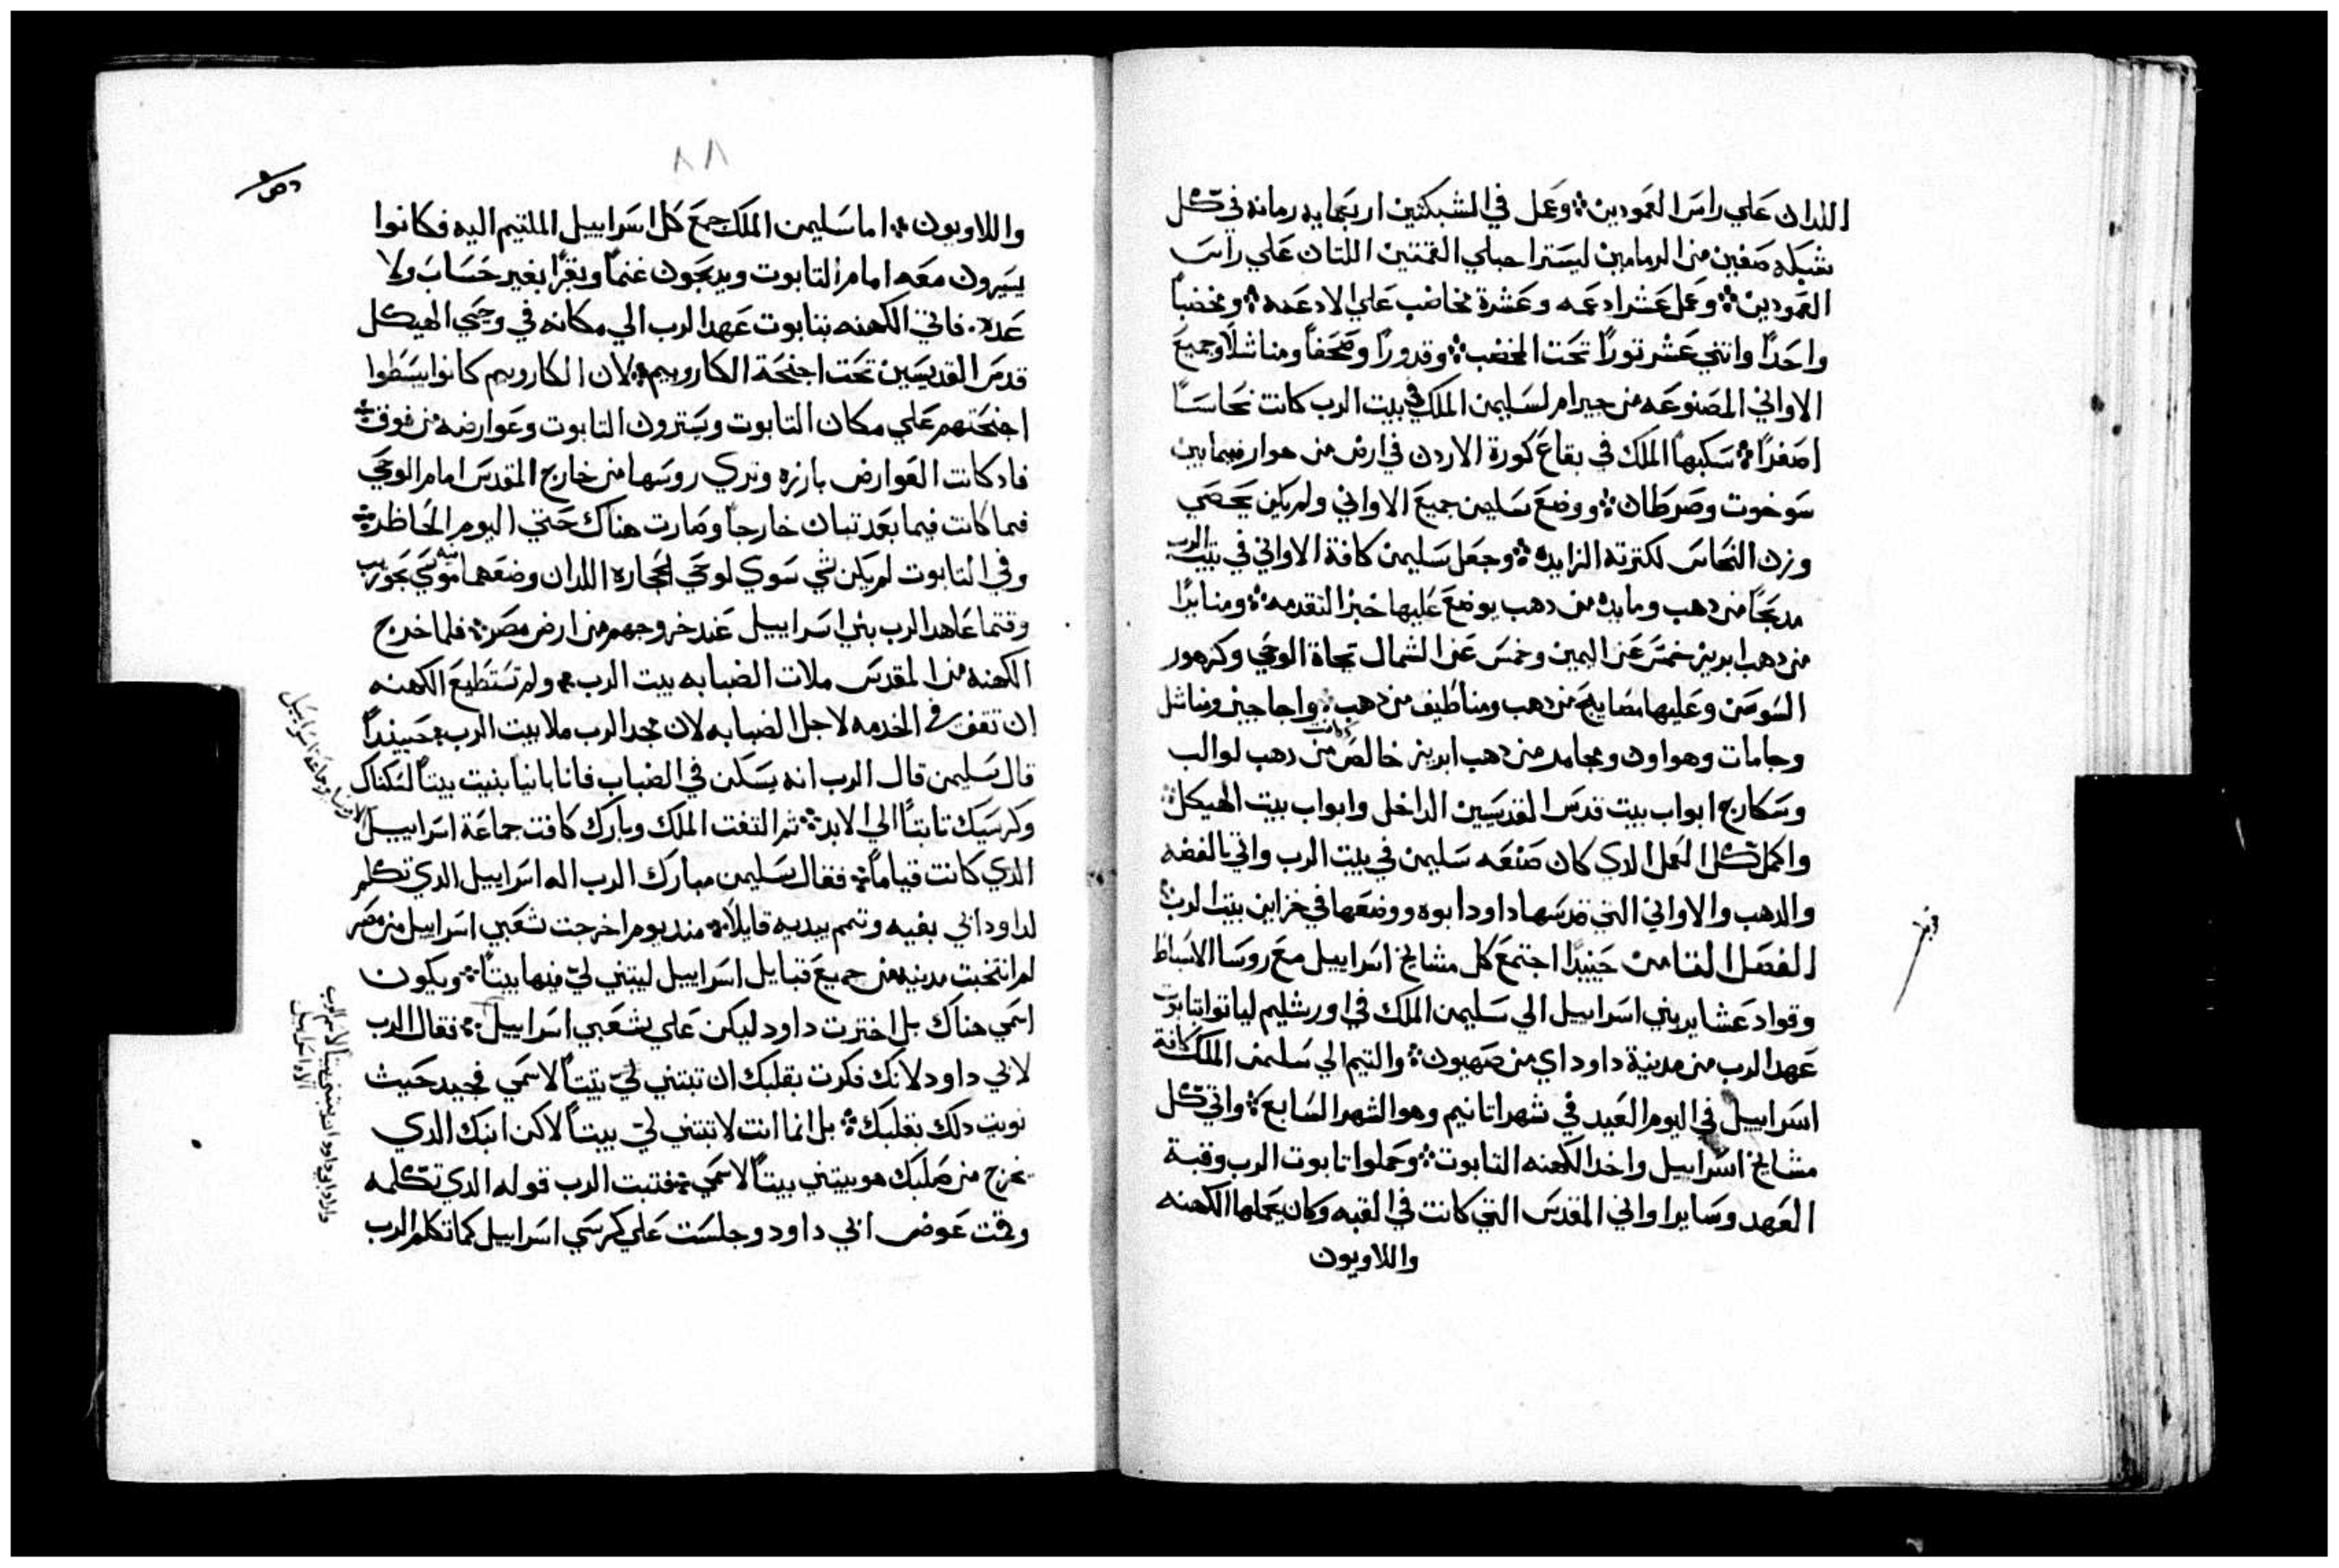 اللدان علي راس العمودين ⁘ وعمل في الشبكتين اربعمايه رمانه في كل
شبكه صفين من الرمامين ليسترا حبلي القمتين اللتان علي راس
العمودين ⁘ وعمل عشر ادعمه وعشرة مخاضب علي الادعمه ⁘ ومخضباً
واحداً واتني عشر توراً تحت المخضب ⁘ وقدوراً وصحفاً ومناشلاً وجميع
الاواني المصنوعه من حيرام لسليمن الملك في بيت الرب كانت نحاساً
اصفراً ⁘ سكبها الملك في بقاع كورة الاردن في ارض من هوار فيما بين
سوخوت وصرطان ⁘ ووضع سليمن جميع الاواني ولم يكن يحصي
وزن النحاس لكترته الزايده ⁘ وجعل سليمن كافة الاواني في بيت الرب
مدبحاً من دهب ومايده من دهب يوضع عليها خبز التقدمه ⁘ ومنايراً
من دهب ابريز خمس عن اليمين وخمس عن الشمال تجاة الوحي وكزهور
السوسن وعليها مصابيح من دهب ومناطيف من دهب ⁘ واجاجين ومناشل
وجامات وهواون ومجامر من دهب ابريز خالص كانت من دهب لوالب
وسكارج ابواب بيت قدس القدسين الداخلي وابواب بيت الهيكل ⁘
واكمل كل العمل الدي كان صنعه سليمن في بيت الرب واتي بالفضه
والدهب والاواني التي قدسها داود ابوه ووضعها في خزاين بيت الرب ⁘
الفصل التامن حينيداً اجتمع كل مشايخ اسراييل مع روسا الاسباط
وقواد عشاير بني اسراييل الي سليمن الملك في اورشليم لياتوا بتابوت
عهد الرب من مدينة داود اي من صهيون ⁘ والتيم الي سليمن الملك كافة
اسراييل في اليوم العيد في شهر اتانيم وهو الشهر السابع ⁘ واتي كل
مشايخ اسراييل واخد الكهنه التابوت ⁘ وحملوا تابوت الرب وقبة
العهد وساير اواني المقدس التي كانت في القبه وكان يحملها الكهنه
واللاويون
٨٨
واللاويون ⁘ اما سليمن الملك جمع كل اسراييل الملتيم اليه فكانوا
يسيرون معه امام التابوت ويدبحون غنماً وبقراً بغير حساب ولا
عدد ⁘ فاتي الكهنه بتابوت عهد الرب الي مكانه في وحي الهيكل
قدس القديسين تحت اجنحة الكاروبيم ⁘ لان الكاروبيم كانوا بسطوا
اجنحتهم علي مكان التابوت ويسترون التابوت وعوارضه من فوق ⁘
فاد كانت العوارض بارزه وتري روسها من خارج المقدس امام الوحي
فما كانت فيما بعد تبان خارجاً وصارت هناك حتي اليوم الحاظر ⁘
وفي التابوت لم يكن شي سوي لوحي الحجاره اللدان وضعهما فيه موسي بحوريب
وقتما عاهد الرب بني اسراييل عند خروجهم من ارض مصر ⁘ فلما خرج
الكهنه من المقدس ملات الضبابه بيت الرب ⁘ ولم تستطيع الكهنه
ان تقف في الخدمه لاجل الضبابه لان مجد الرب ملا بيت الرب ⁘ حينيداً
قال سليمن قال الرب انه يسكن في الضباب فانا بانياً بنيت بيتاً لسكناك
وكرسيك تابتاً الي الابد ⁘ تم التفت الملك وبارك كافت جماعة اسراييل
الدي كانت قياماً ⁘ فقال سليمن مبارك الرب اله اسراييل الدي تكلم
لداود ابي بفيه وتمم بيديه قايلاً ⁘ مند يوم اخرجت شعبي اسراييل من مصر
لم انتخبت مدينه من جميع قبايل اسراييل ليبتني لي فيها بيتاً ⁘ ويكون
اسمي هناك بل اخترت داود ليكن علي شعبي اسراييل ⁘ فقال الرب
لابي داود لانك فكرت بقلبك ان تبتني لي بيتاً لاسمي فجيد حيث
نويت دلك بقلبك ⁘ بل انما انت لا تبتني لي بيتاً لاكن ابنك الدي
يخرج من صلبك هو يبتني بيتاً لاسمي ⁘ فتبت الرب قوله الدي تكلمه
وقمت عوض ابي داود وجلست علي كرسي اسراييل كما تكلم الرب
واراد ابي داود ان يبتني بيتاً لاسم الرب
الاه اسراييل